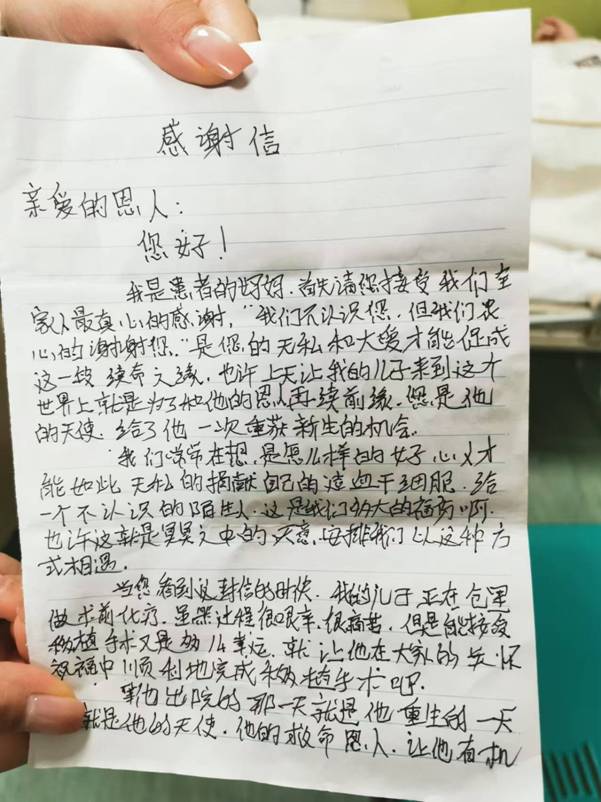 感谢信
亲爱的恩人：
您好！
我是患者的妈妈，首先请您接受我们全
家人最真心的感谢，“我们不认识您，但我们衷
心的谢谢您。”是您的无私和大爱才能促成
这一段续命之缘，也许上天让我的儿子来到这个
世界上就是为了和他的恩人再续前缘，您是他
的天使，给了他一次重获新生的机会。
我们常常在想，是怎么样的好心人才
能如此无私的捐献自己的造血干细胞，给
一个不认识的陌生人，这是我们多大的福分啊，
也许这就是冥冥之中的安排我们以这种方
式相遇。
当您看到这封信的时候，我的儿子正在仓里
做术前化疗，虽然过程很艰辛，很痛苦，但是能接受
移植手术又是幸运，就让他在大家的关怀
祝福中顺利地完成移植手术吧。
等他出院的那一天就是他重生的一天
就是他的天使，他的救命恩人，让他有机